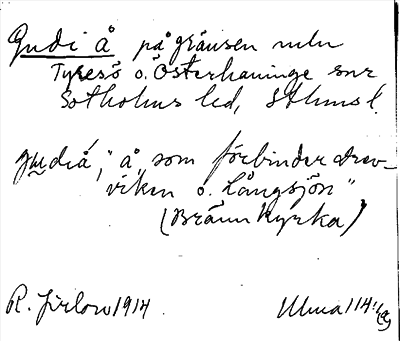 Gudi å på gränsen mln
Tyresö o. Österhaninge snr
Sotholms hd, Sthms l.
gudiå, "å, som förbinder Drev-
viken o. Långsjön"
(Brännkyrka)
R. Jirlow 1914 Ulma 114: